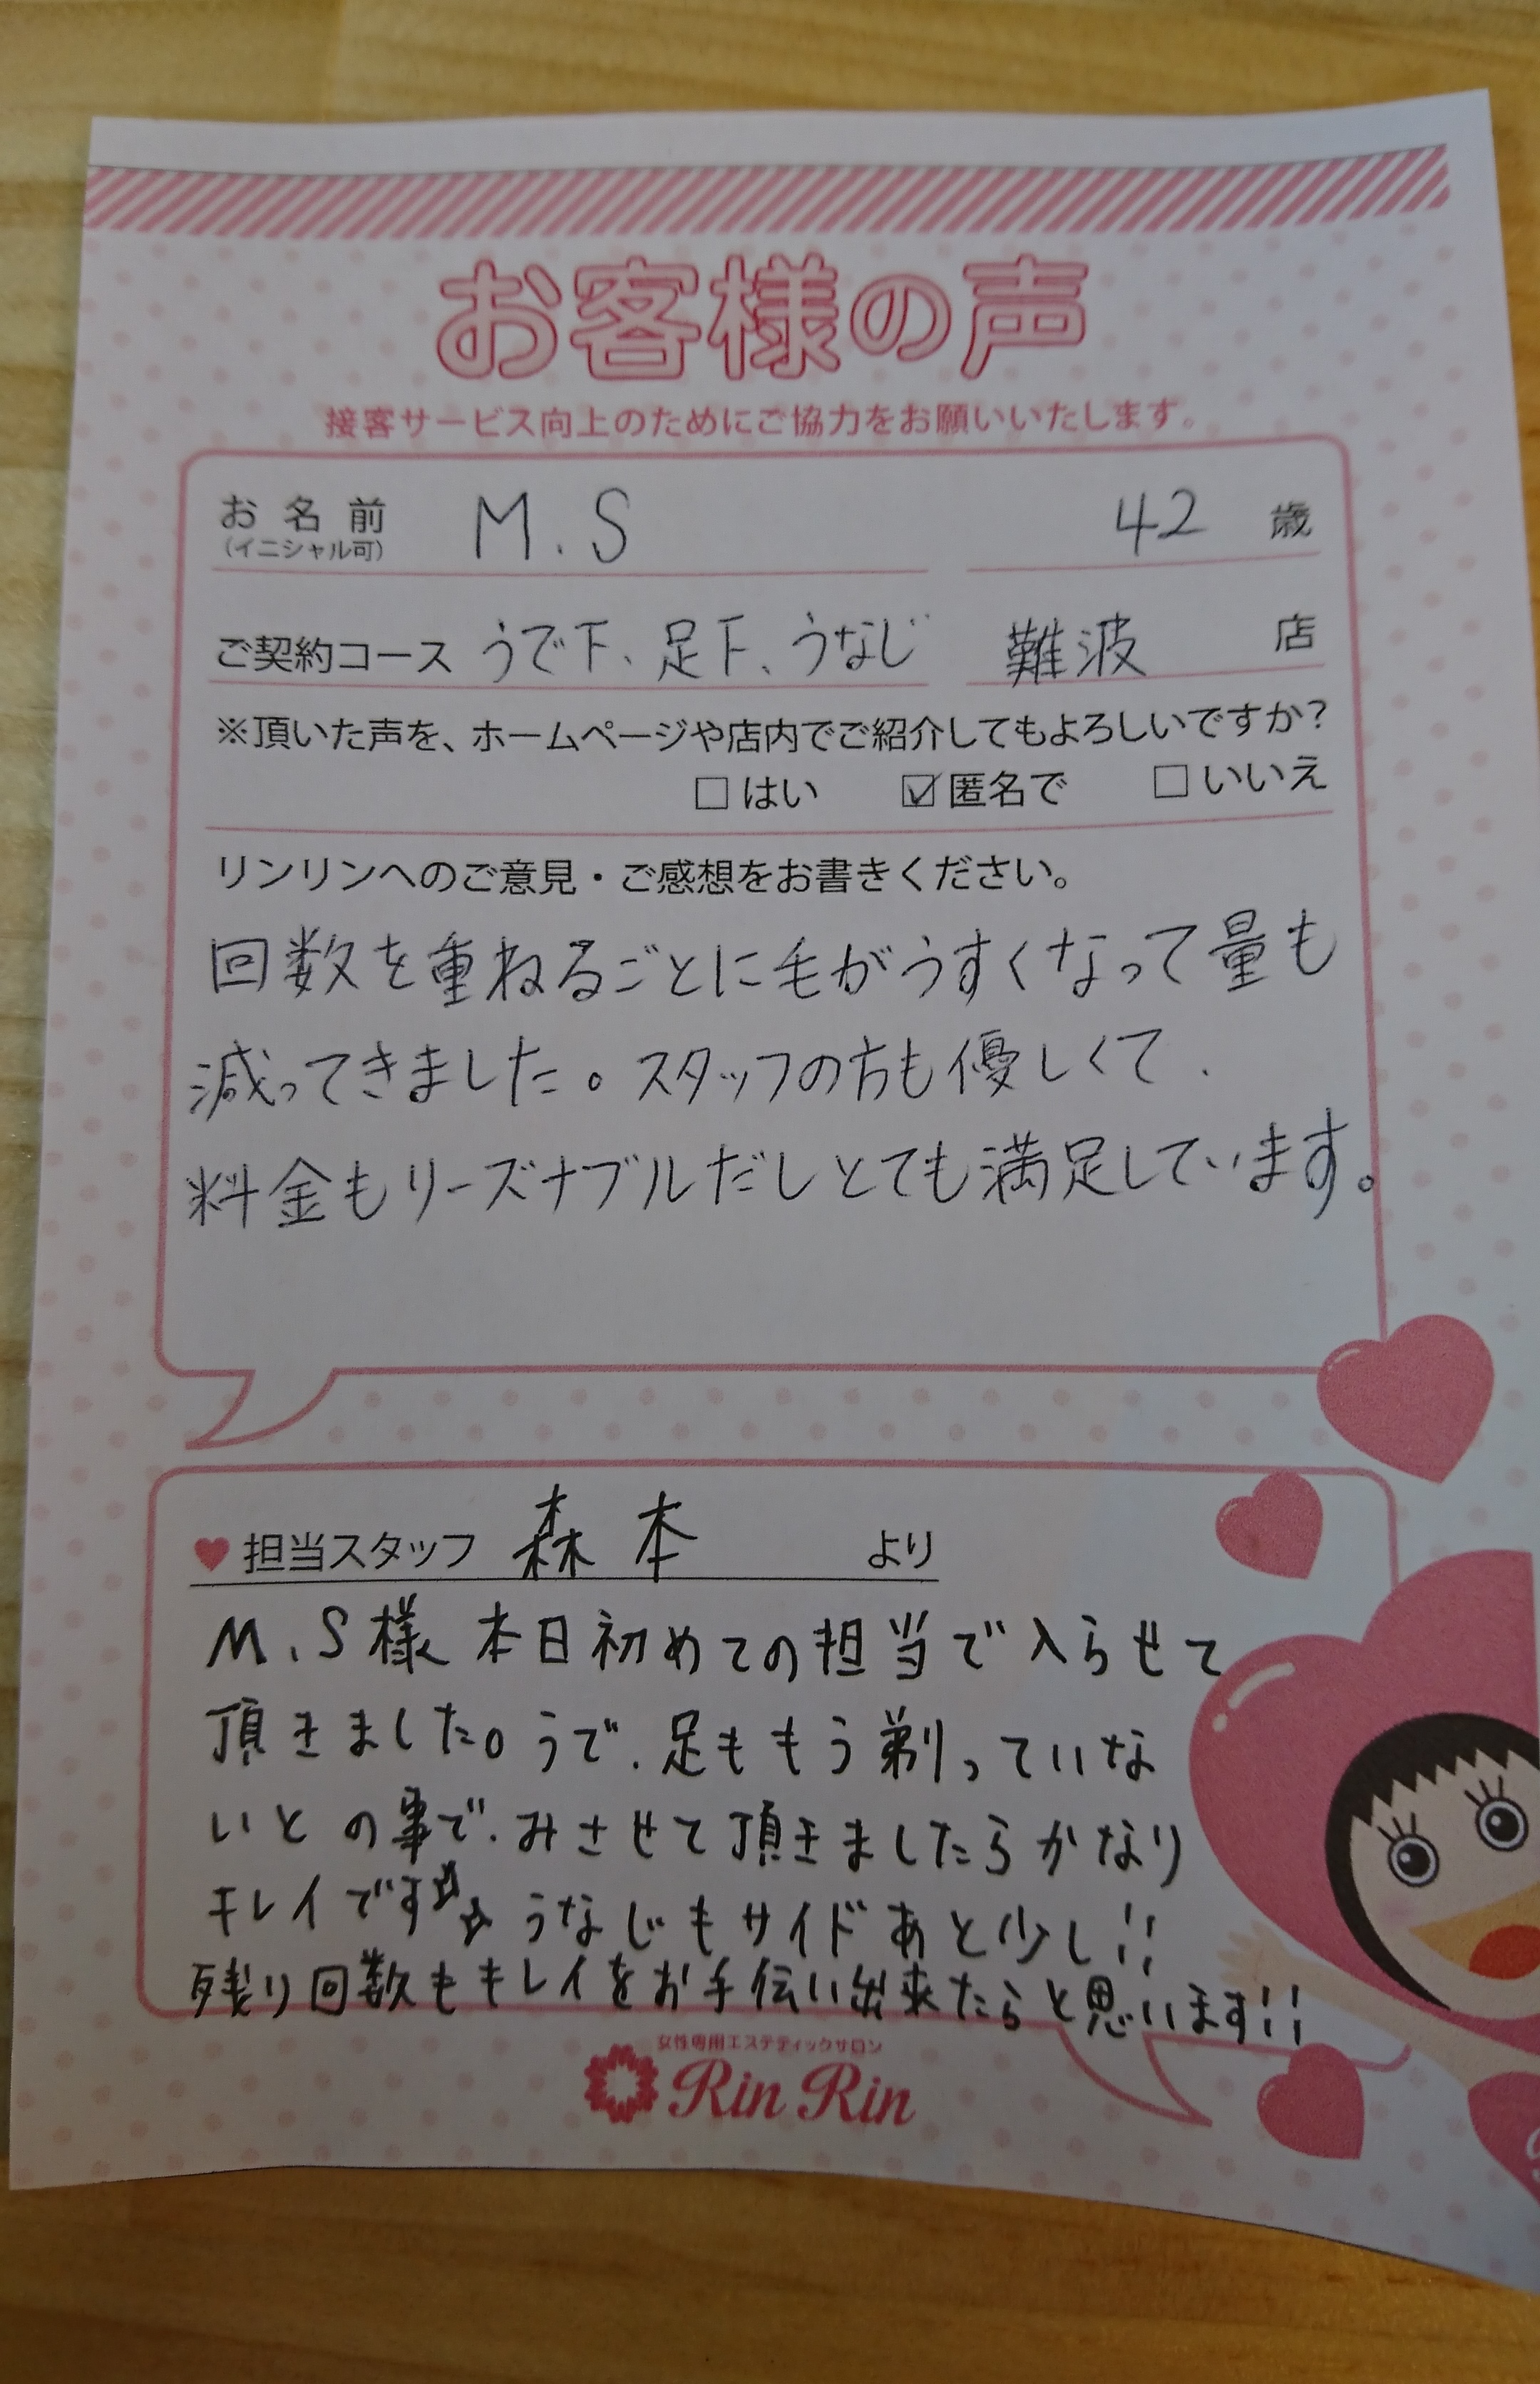 お客様の声
接客サービス向上のためにご協力をお願いいたします。
お名前 M.S 42 歳
(イニシャル可)
ご契約コース うで下、足下、うなじ 難波 店
※頂いた声を、ホームページや店内でご紹介してもよろしいですか?
□はい ☑匿名で □いいえ
リンリンへのご意見・ご感想をお書きください。
回数を重ねるごとに毛がうすくなって量も
減ってきました。スタッフの方も優しくて、
料金もリーズナブルだしとても満足しています。
♥担当スタッフ 森本 より
M.S様 本日初めての担当で入らせて
頂きました。うで、足ももう剃っていな
いとの事で、みさせて頂きましたらかなり
キレイです☆☆ うなじもサイドあと少し!!
残り回数もキレイをお手伝い出来たらと思います!!
女性専用エステティックサロン
Rin Rin